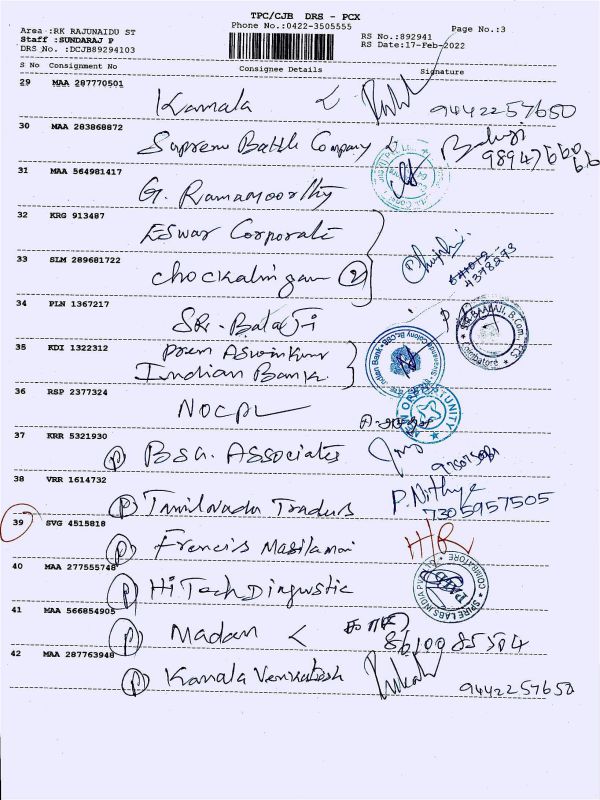 TPC/CJB DRS - PCX
Area :RK RAJUNAIDU ST Phone No.:0422-3505555 Page No.:3
Staff :SUNDARAJ P RS No.:892941
DRS No. :DCJB89294103 RS Date:17-Feb-2022
S No Consignment No Consignee Details Signature
29 MAA 287770501
Kamala 9442257650
30 MAA 283868872
Supreme Battle Company
31 MAA 564981417
G. Ramamoorthy
32 KRG 913487
Eswar Corporate
33 SLM 289681722
Chockalingam (2)
4378293
34 PLN 1367217
Sri. Balaji
S.R. BALAJI, B.Com., FCS
Coimbatore
35 KDI 1322312
Prem Aswinkumar
Indian Bank
36 RSP 2377324
NOCPL
37 KRR 5321930
(P) Associates
38 VRR 1614732
(P) Tamilnadu Traders P. Nithya
7305957505
39 SVG 4515818
(P) Francis Masilamai
40 MAA 277555748
(P) Hi Tech Dingustic
SPIRE LABS INDIA PVT
COIMBATORE
41 MAA 566854905
(P) Madan 8610085504
42 MAA 287763948
(P) Kamala Venkatesh
9442257650